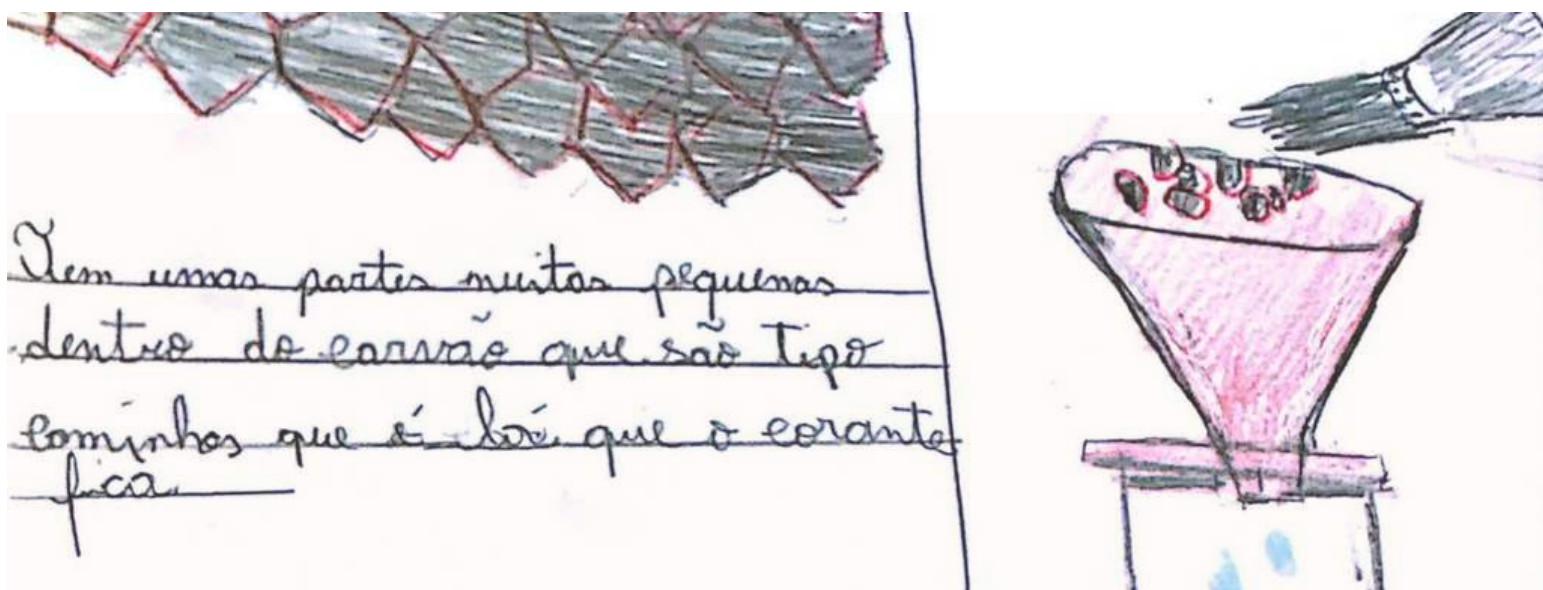 Tem umas partes muitas pequenas
dentro do carvão que são tipo
caminhos que é lá que o corante
fica.